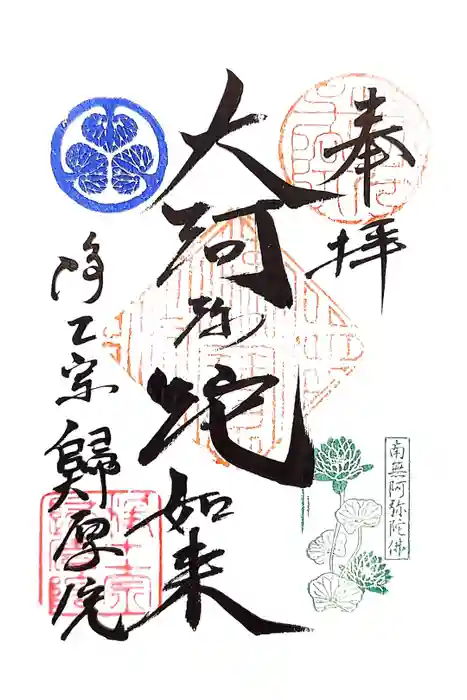 奉拝
南無阿弥陀佛
大阿弥陀如来
浄土宗 歸厚院